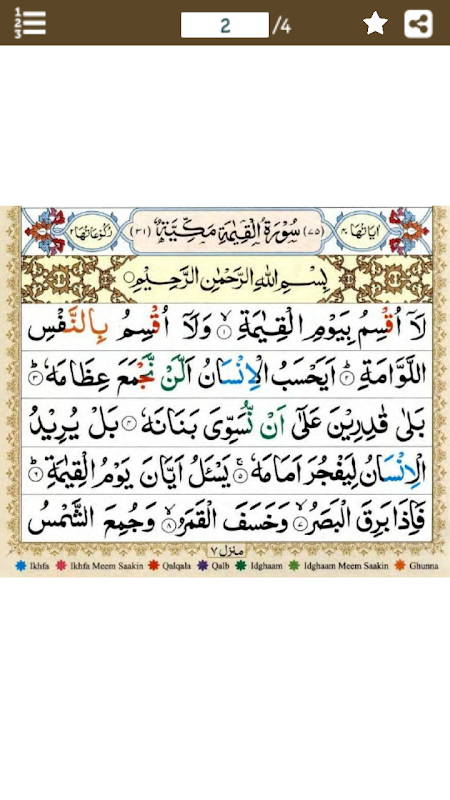 1
2
3
2 /4
اٰیاتها ۴۰ (۷۵) سُوْرَةُ الْقِیٰمَةِ مَكِّیَّةٌ (۳۱) رُكُوْعَاتُهَا ۲
بِسْمِ اللّٰهِ الرَّحْمٰنِ الرَّحِیْمِ
لَاۤ اُقْسِمُ بِیَوْمِ الْقِیٰمَةِ ۙ۱ وَلَاۤ اُقْسِمُ بِالنَّفْسِ
اللَّوَّامَةِ ؕ۲ اَیَحْسَبُ الْاِنْسَانُ اَلَّنْ نَّجْمَعَ عِظَامَهٗ ؕ۳
بَلٰی قٰدِرِیْنَ عَلٰۤی اَنْ نُّسَوِّیَ بَنَانَهٗ ۴ بَلْ یُرِیْدُ
الْاِنْسَانُ لِیَفْجُرَ اَمَامَهٗ ۚ۵ یَسْـَٔلُ اَیَّانَ یَوْمُ الْقِیٰمَةِ ؕ۶
فَاِذَا بَرِقَ الْبَصَرُ ۙ۷ وَخَسَفَ الْقَمَرُ ۙ۸ وَجُمِعَ الشَّمْسُ
منزل ۷
Ikhfa Ikhfa Meem Saakin Qalqala Qalb Idghaam Idghaam Meem Saakin Ghunna